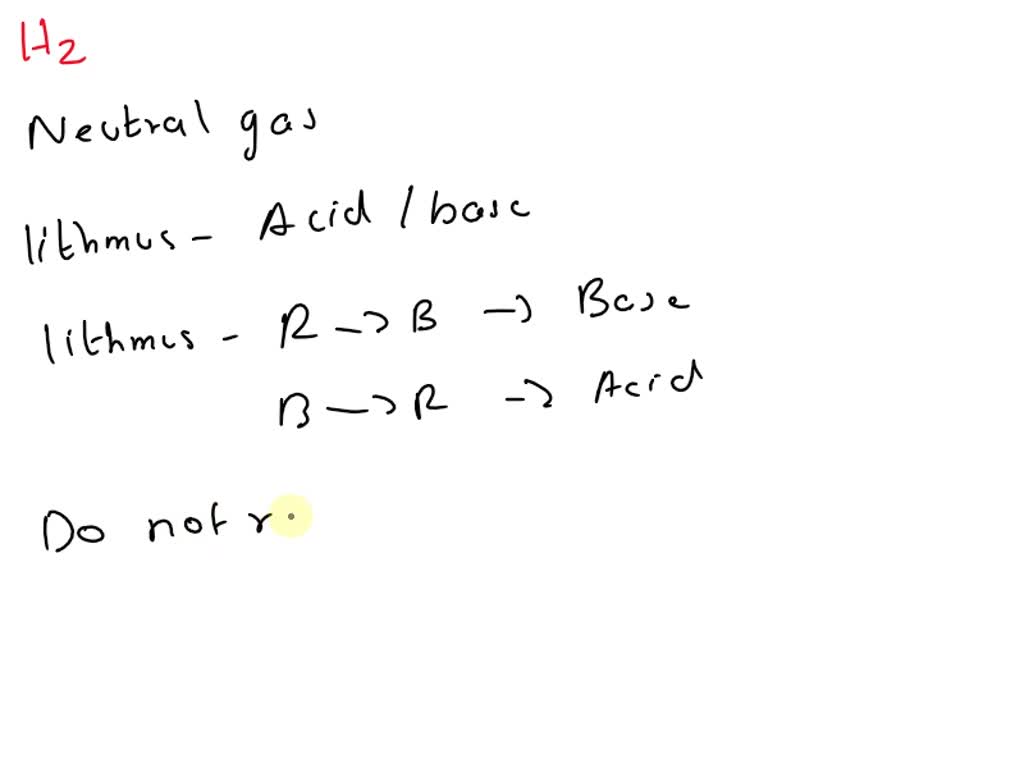 H2
Neutral gas
lithmus - Acid / base
lithmus - R → B → Base
B → R → Acid
Do not r